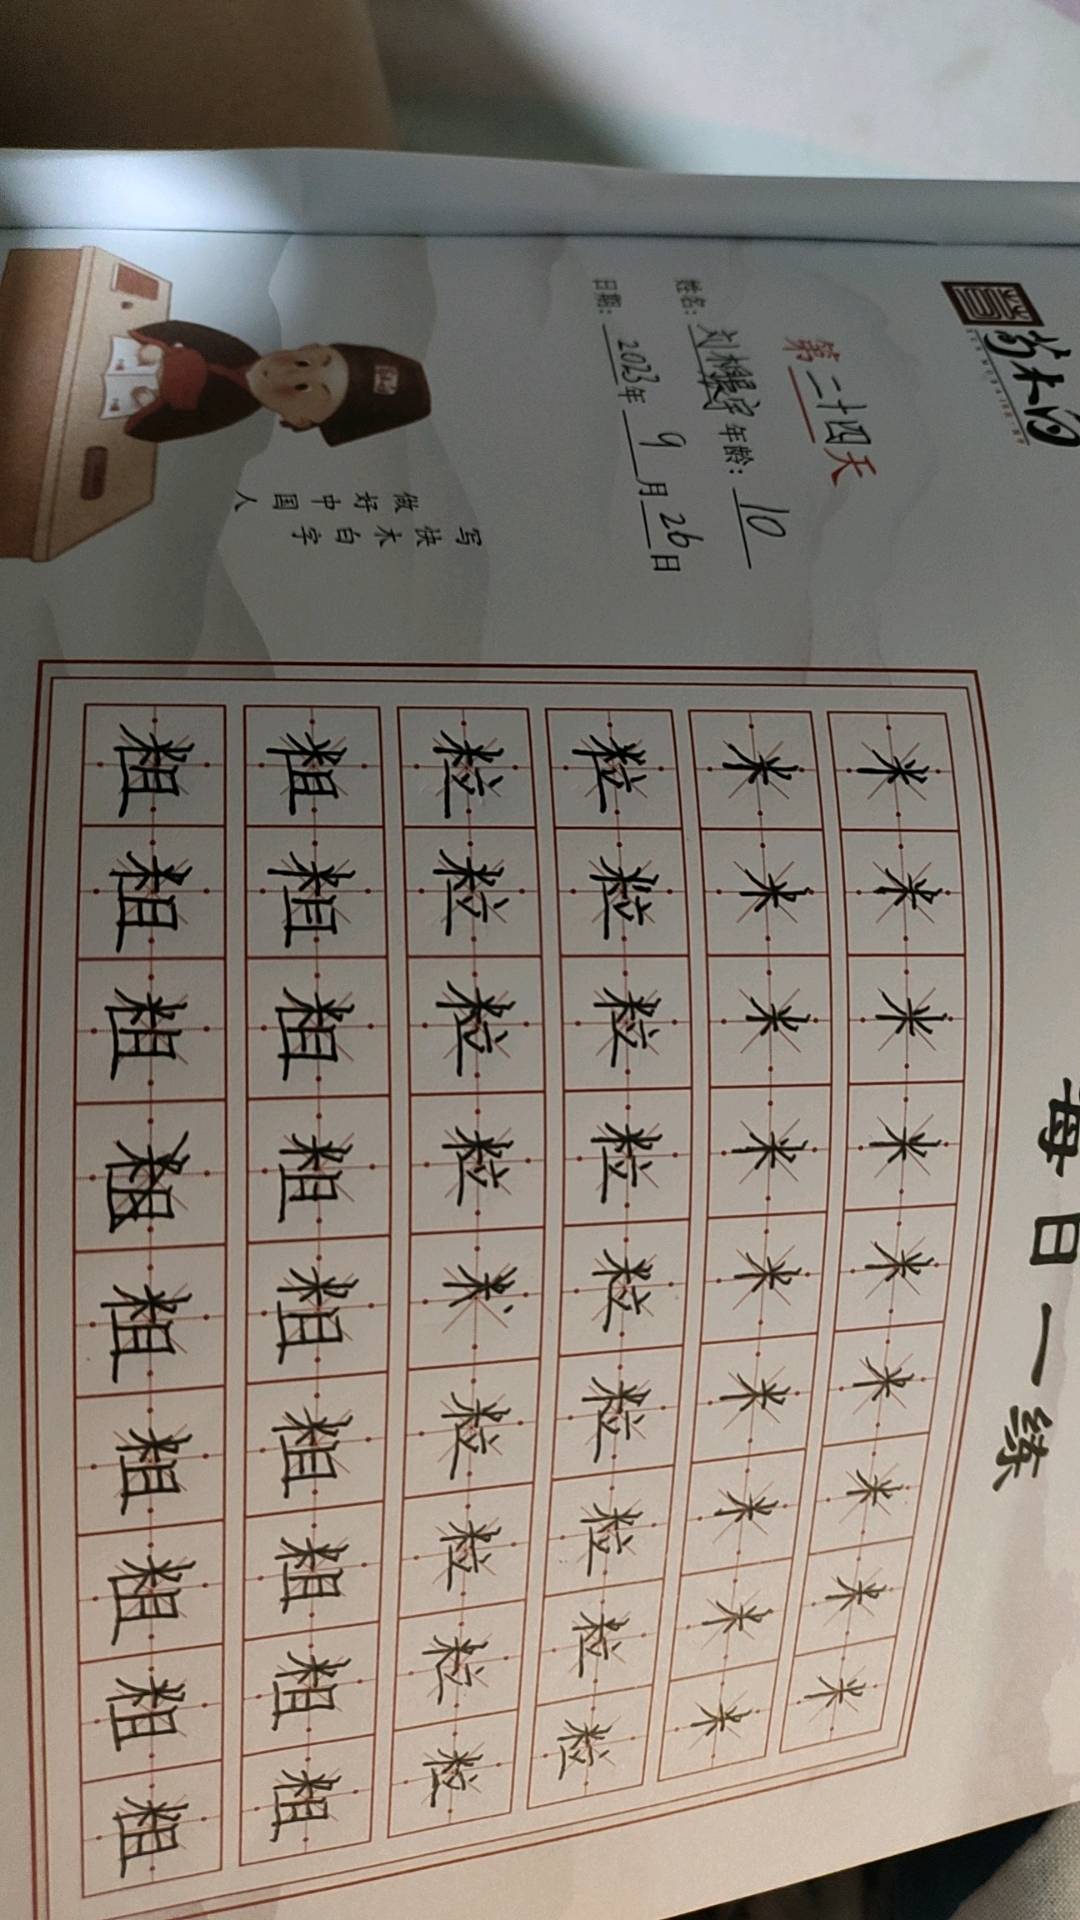 木白
每日一练
第二十四天
姓名：刘 年龄：10
日期：2023年9月26日
写快木白字
做好中国人
米米米米米米米米米
米米米米米米米米米
粒粒粒粒粒粒粒粒粒
粒粒粒粒米粒粒粒粒
粗粗粗粗粗粗粗粗粗
粗粗粗粗粗粗粗粗粗